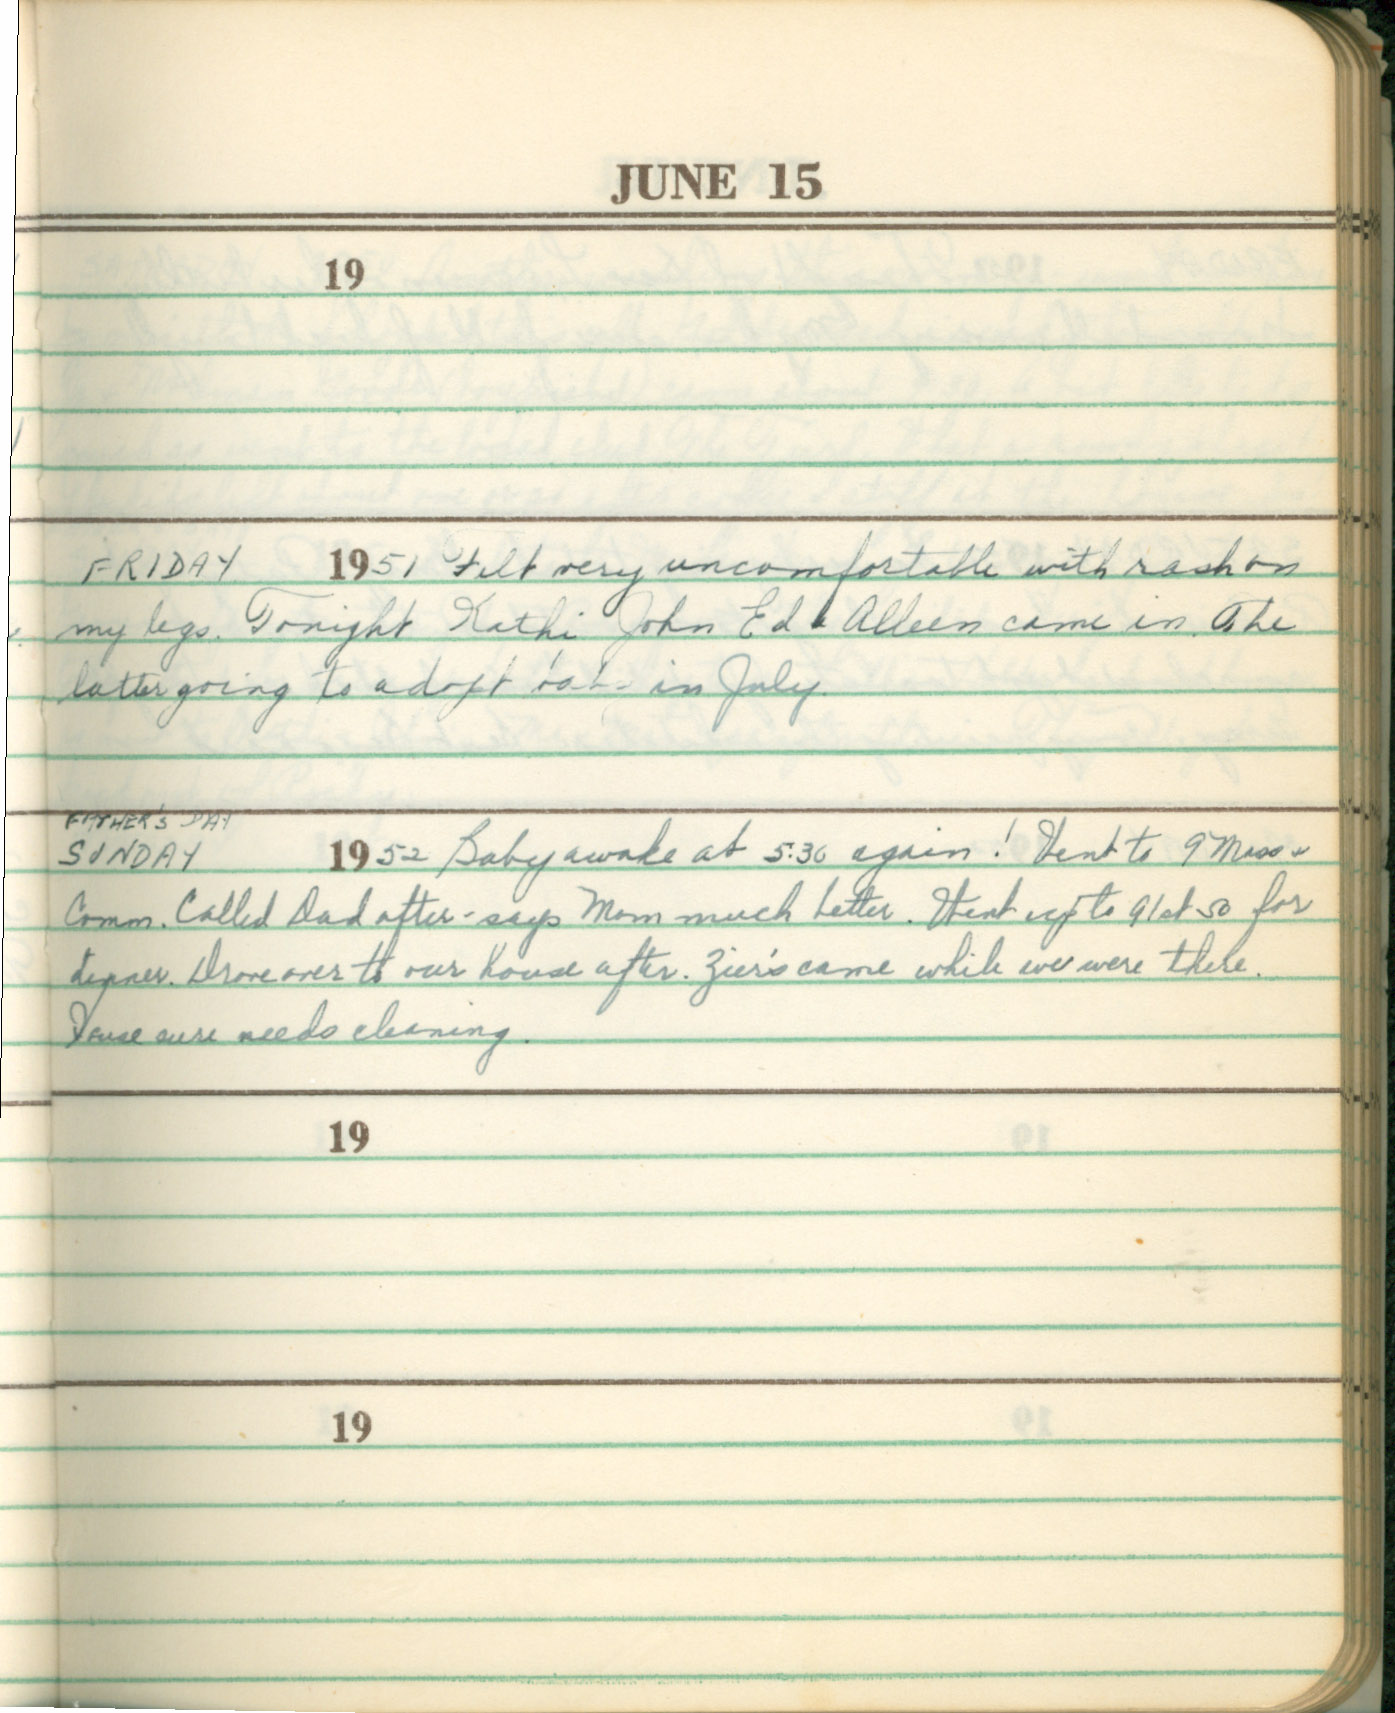 JUNE 15
19
FRIDAY 1951 Felt very uncomfortable with rash on
my legs. Tonight Kathi John Ed & Alleen came in. The
latter going to adopt baby in July.
FATHER'S DAY
SUNDAY 1952 Baby awoke at 5:30 again! Went to 9 Mass &
Comm. Called Dad after - says Mom much better. Went up to 91st St for
dinner. Drove over to our house after. Zier's came while we were there.
House sure needs cleaning.
19
19